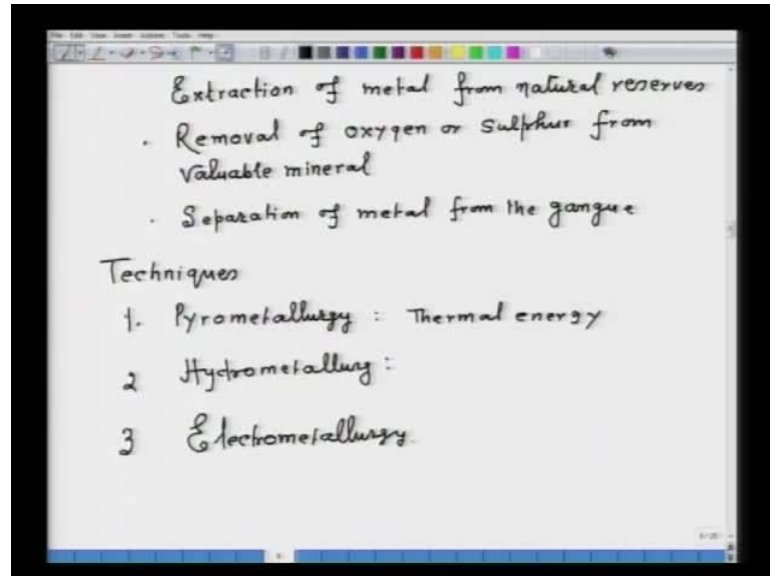 Extraction of metal from natural reserves
. Removal of oxygen or Sulphur from
Valuable mineral
. Separation of metal from the gangue
Techniques
1. Pyrometallurgy : Thermal energy
2 Hydrometallurg :
3 Electrometallurgy.